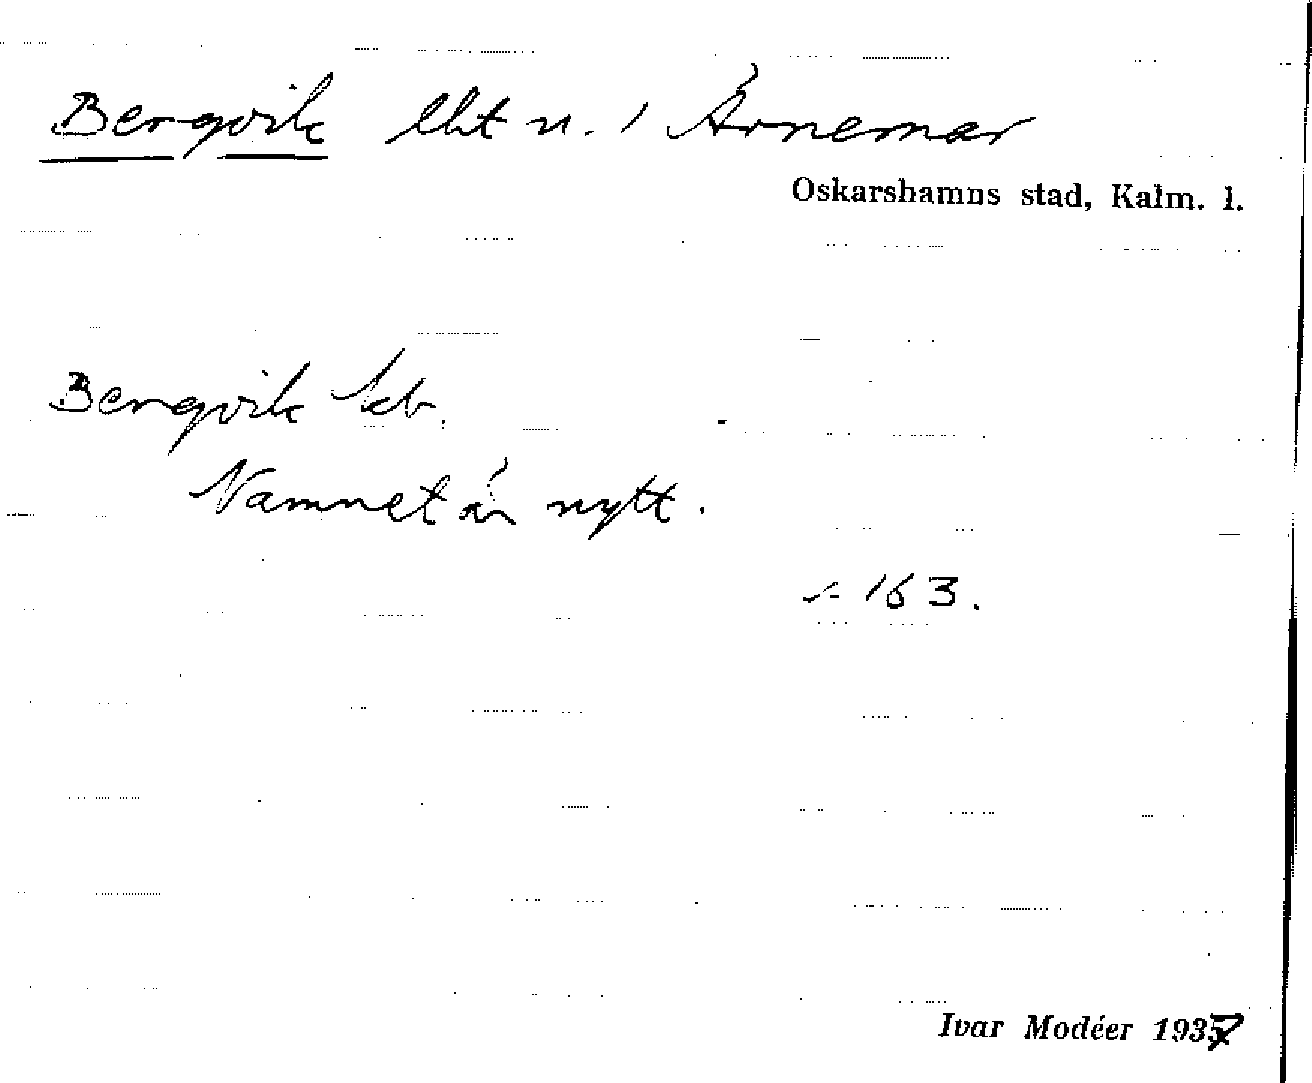 Bergvik lht n. i Århemar
Oskarshamns stad, Kalm. l.
Bergvik kb.
Namnet är nytt.
s. 163.
Ivar Modéer 1937